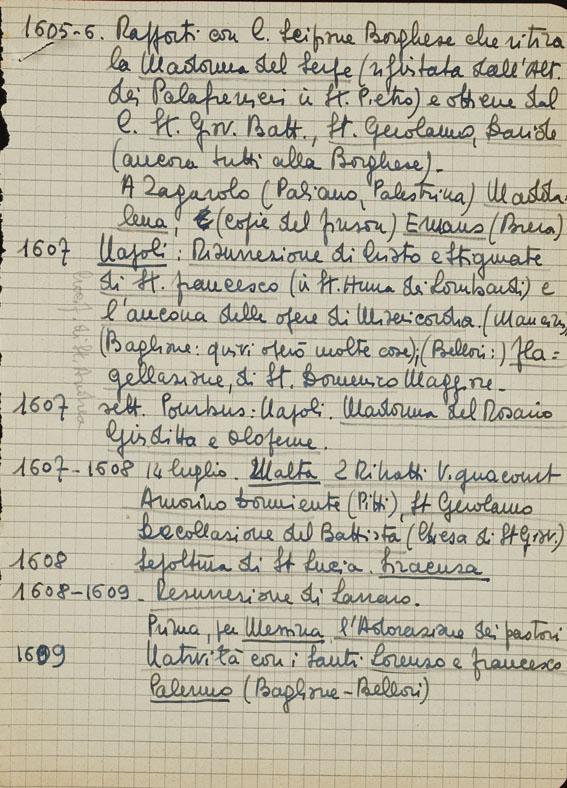 1605-6. Rapporti con C. Scipione Borghese che ritira
la Madonna del Serpe (rifiutata dall'Alt.
dei Palafrenieri in St. Pietro) e ottiene dal
C. St. Giov. Batt., St. Gerolamo, Davide
(ancora tutti alla Borghese).
A Zagarolo (Paliano, Palestrina) Madda
lena, (copie del Finson) Emaus (Brera)
1607 Napoli: Risurrezione di Cristo e Stigmate
di St. Francesco (in St. Anna dei Lombardi) e
l'ancona delle opere di Misericordia. (Mancini)
(Baglione: quivi operò molte cose); (Bellori:) Fla=
gellazione, di St. Domenico Maggiore.
1607 sett. Pourbus: Napoli. Madonna del Rosario
Giuditta e Oloferne.
1607-1608 14 luglio. Malta 2 Ritratti Vignacourt
Amorino Dormiente (Pitti), St Gerolamo
Decollazione del Battista (Chiesa di St Giov.)
1608 Sepoltura di St Lucia. Siracusa
1608-1609. Resurrezione di Lazzaro.
Prima, per Messina, l'Adorazione dei pastori
1609 Natività con i Santi Lorenzo e Francesco
Palermo (Baglione-Bellori)